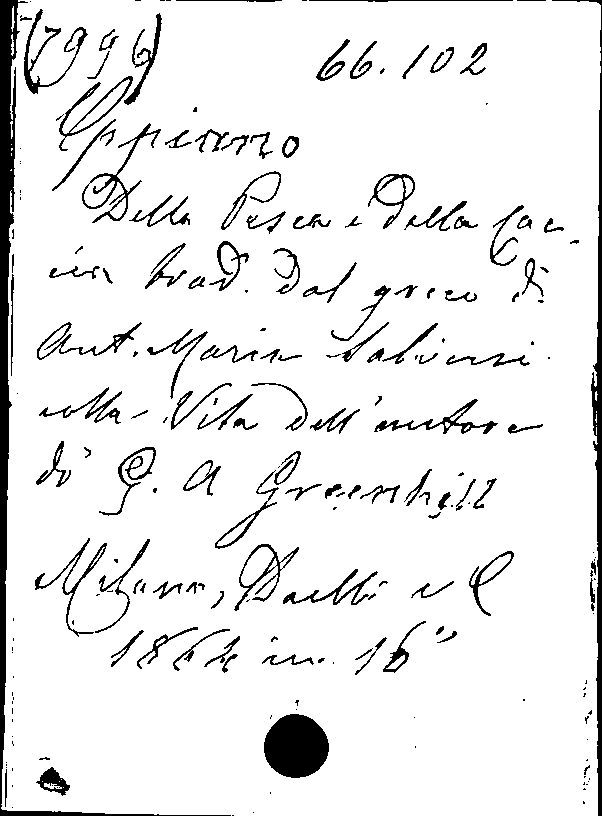 (7996) 66.102
Oppiano
Della Pesca e della Cac-
cia trad. dal greco di
Ant. Maria Salvini
colla Vita dell'autore
di G. A Greenhill
Milano, Daelli e C
1864 in 16º